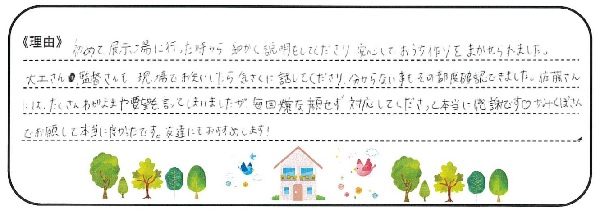 《理由》 初めて展示場に行った時から 細かく説明をしてくださり 安心しておうち作りをまかせられました。
大工さん 監督さんも 現場でお会いしたら気さくに話してくださり、分からない事もその都度確認できました。佐藤さん
には、たくさんわがままや要望を言ってしまいましたが 毎回嫌な顔せず 対応してくださって本当に感謝です♡ かみくぼさん
でお願いして本当に良かったです。友達にもおすすめします!